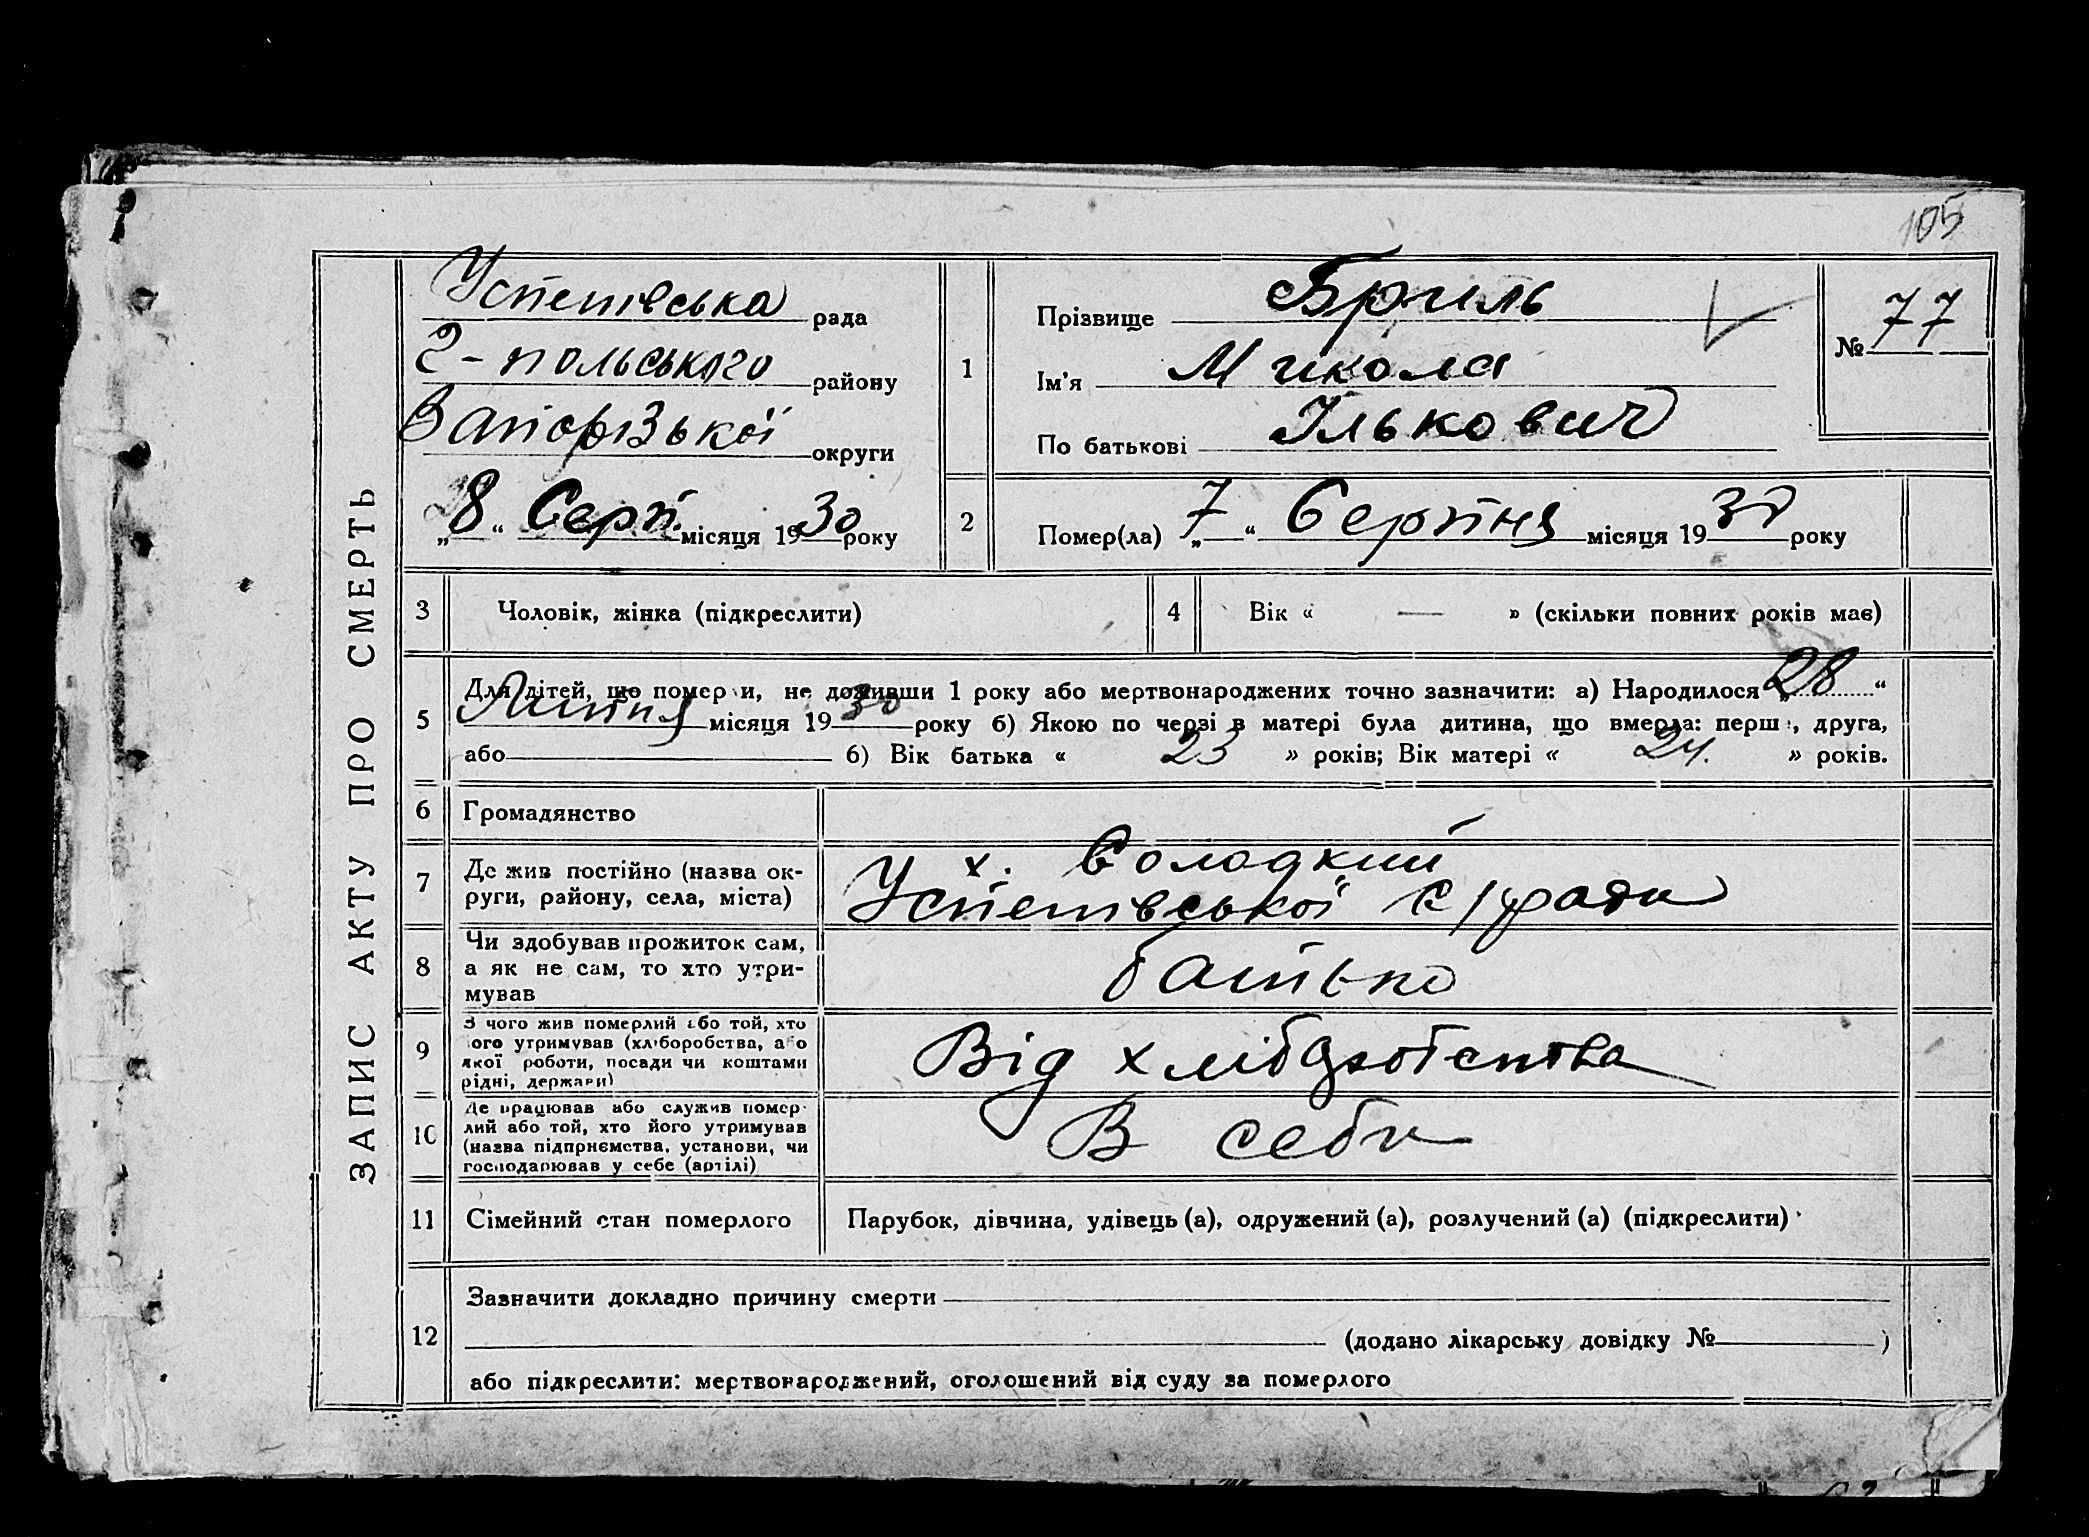 105
ЗАПИС АКТУ ПРО СМЕРТЬ
Успенівська рада
Г-польського району
Запорізької округи
„8“ Серп. місяця 1930 року
1
Прізвище Бриль
Ім'я Микола
По батькові Ількович
№ 77
2
Помер(ла) „7“ Серпня місяця 1930 року
3 Чоловік, жінка (підкреслити)
4 Вік « — » (скільки повних років має)
5 Для дітей, що померли, не доживши 1 року або мертвонароджених точно зазначити: а) Народилося „28“
Липня місяця 1930 року б) Якою по черзі в матері була дитина, що вмерла: перша, друга,
або 6) Вік батька « 23 » років; Вік матері « 24. » років.
6 Громадянство
7 Де жив постійно (назва ок-
руги, району, села, міста)
х. Солодкий
Успенівської с/ради
8 Чи здобував прожиток сам,
а як не сам, то хто утри-
мував
батько
9 З чого жив померлий або той, хто
його утримував (хліборобства, або
якої роботи, посади чи коштами
рідні, держави)
Від хліборобства
10 Де працював або служив помер-
лий або той, хто його утримував
(назва підприємства, установи, чи
господарював у себе (артілі)
В себе
11 Сімейний стан померлого
Парубок, дівчина, удівець (а), одружений (а), розлучений (а) (підкреслити)
12 Зазначити докладно причину смерти
(додано лікарську довідку № )
або підкреслити: мертвонароджений, оголошений від суду за померлого